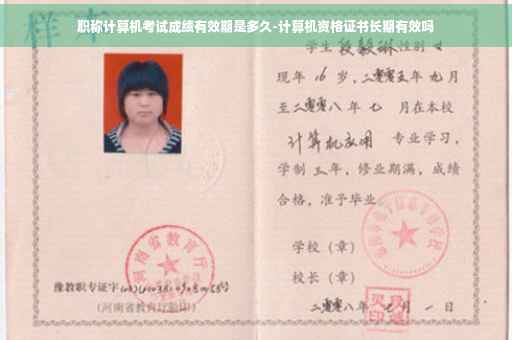 职称计算机考试成绩有效期是多久-计算机资格证书长期有效吗
样本
学生 段毅琳 性别 女
现年 16 岁，二零零五年 九 月
至二零零八年 七 月在本校
计算机应用 专业学习，
学制 三 年，修业期满，成绩
合格，准予毕业。
学校（章）
校长（章）
二零零八年 七 月 一 日
河南省教育厅
豫教职专证字
（河南省教育厅验印）